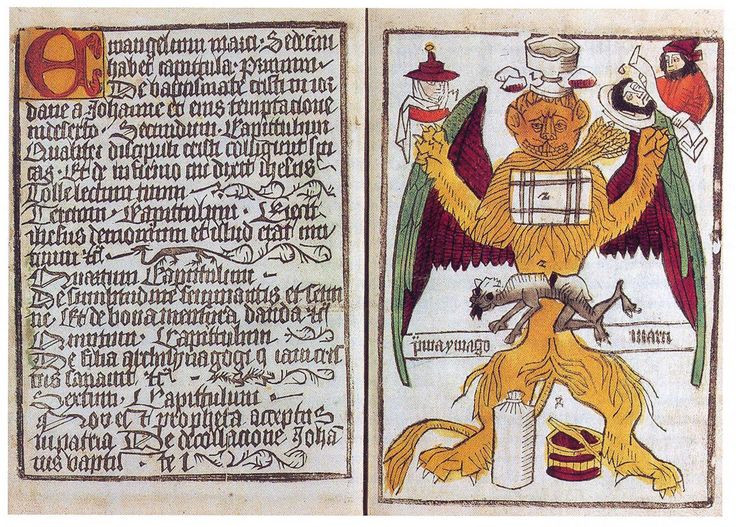 Ewangelium marci · Sedecim
habet capitula · Primum ·
De baptismate cristi in ior
dane a Johanne et eius temptacione
in deserto · Secundum · Capitulum
Qualiter discipuli cristi colligunt spi
cas · Et de infirmo cui dixit ihesus
Tolle lectum tuum
Tercium · Capitulum · Eiecit
ihesus demonium et illud erat mu
tum
Quartum Capitulum
De similitudine seminantis et semi
ne Et de bona mensura danda
Quintum · Capitulum
De filia archisynagogi
Sextum · Capitulum ·
propheta acceptus
in patria De decollacione Joha
nnis bapti
prima ymago
marci
2